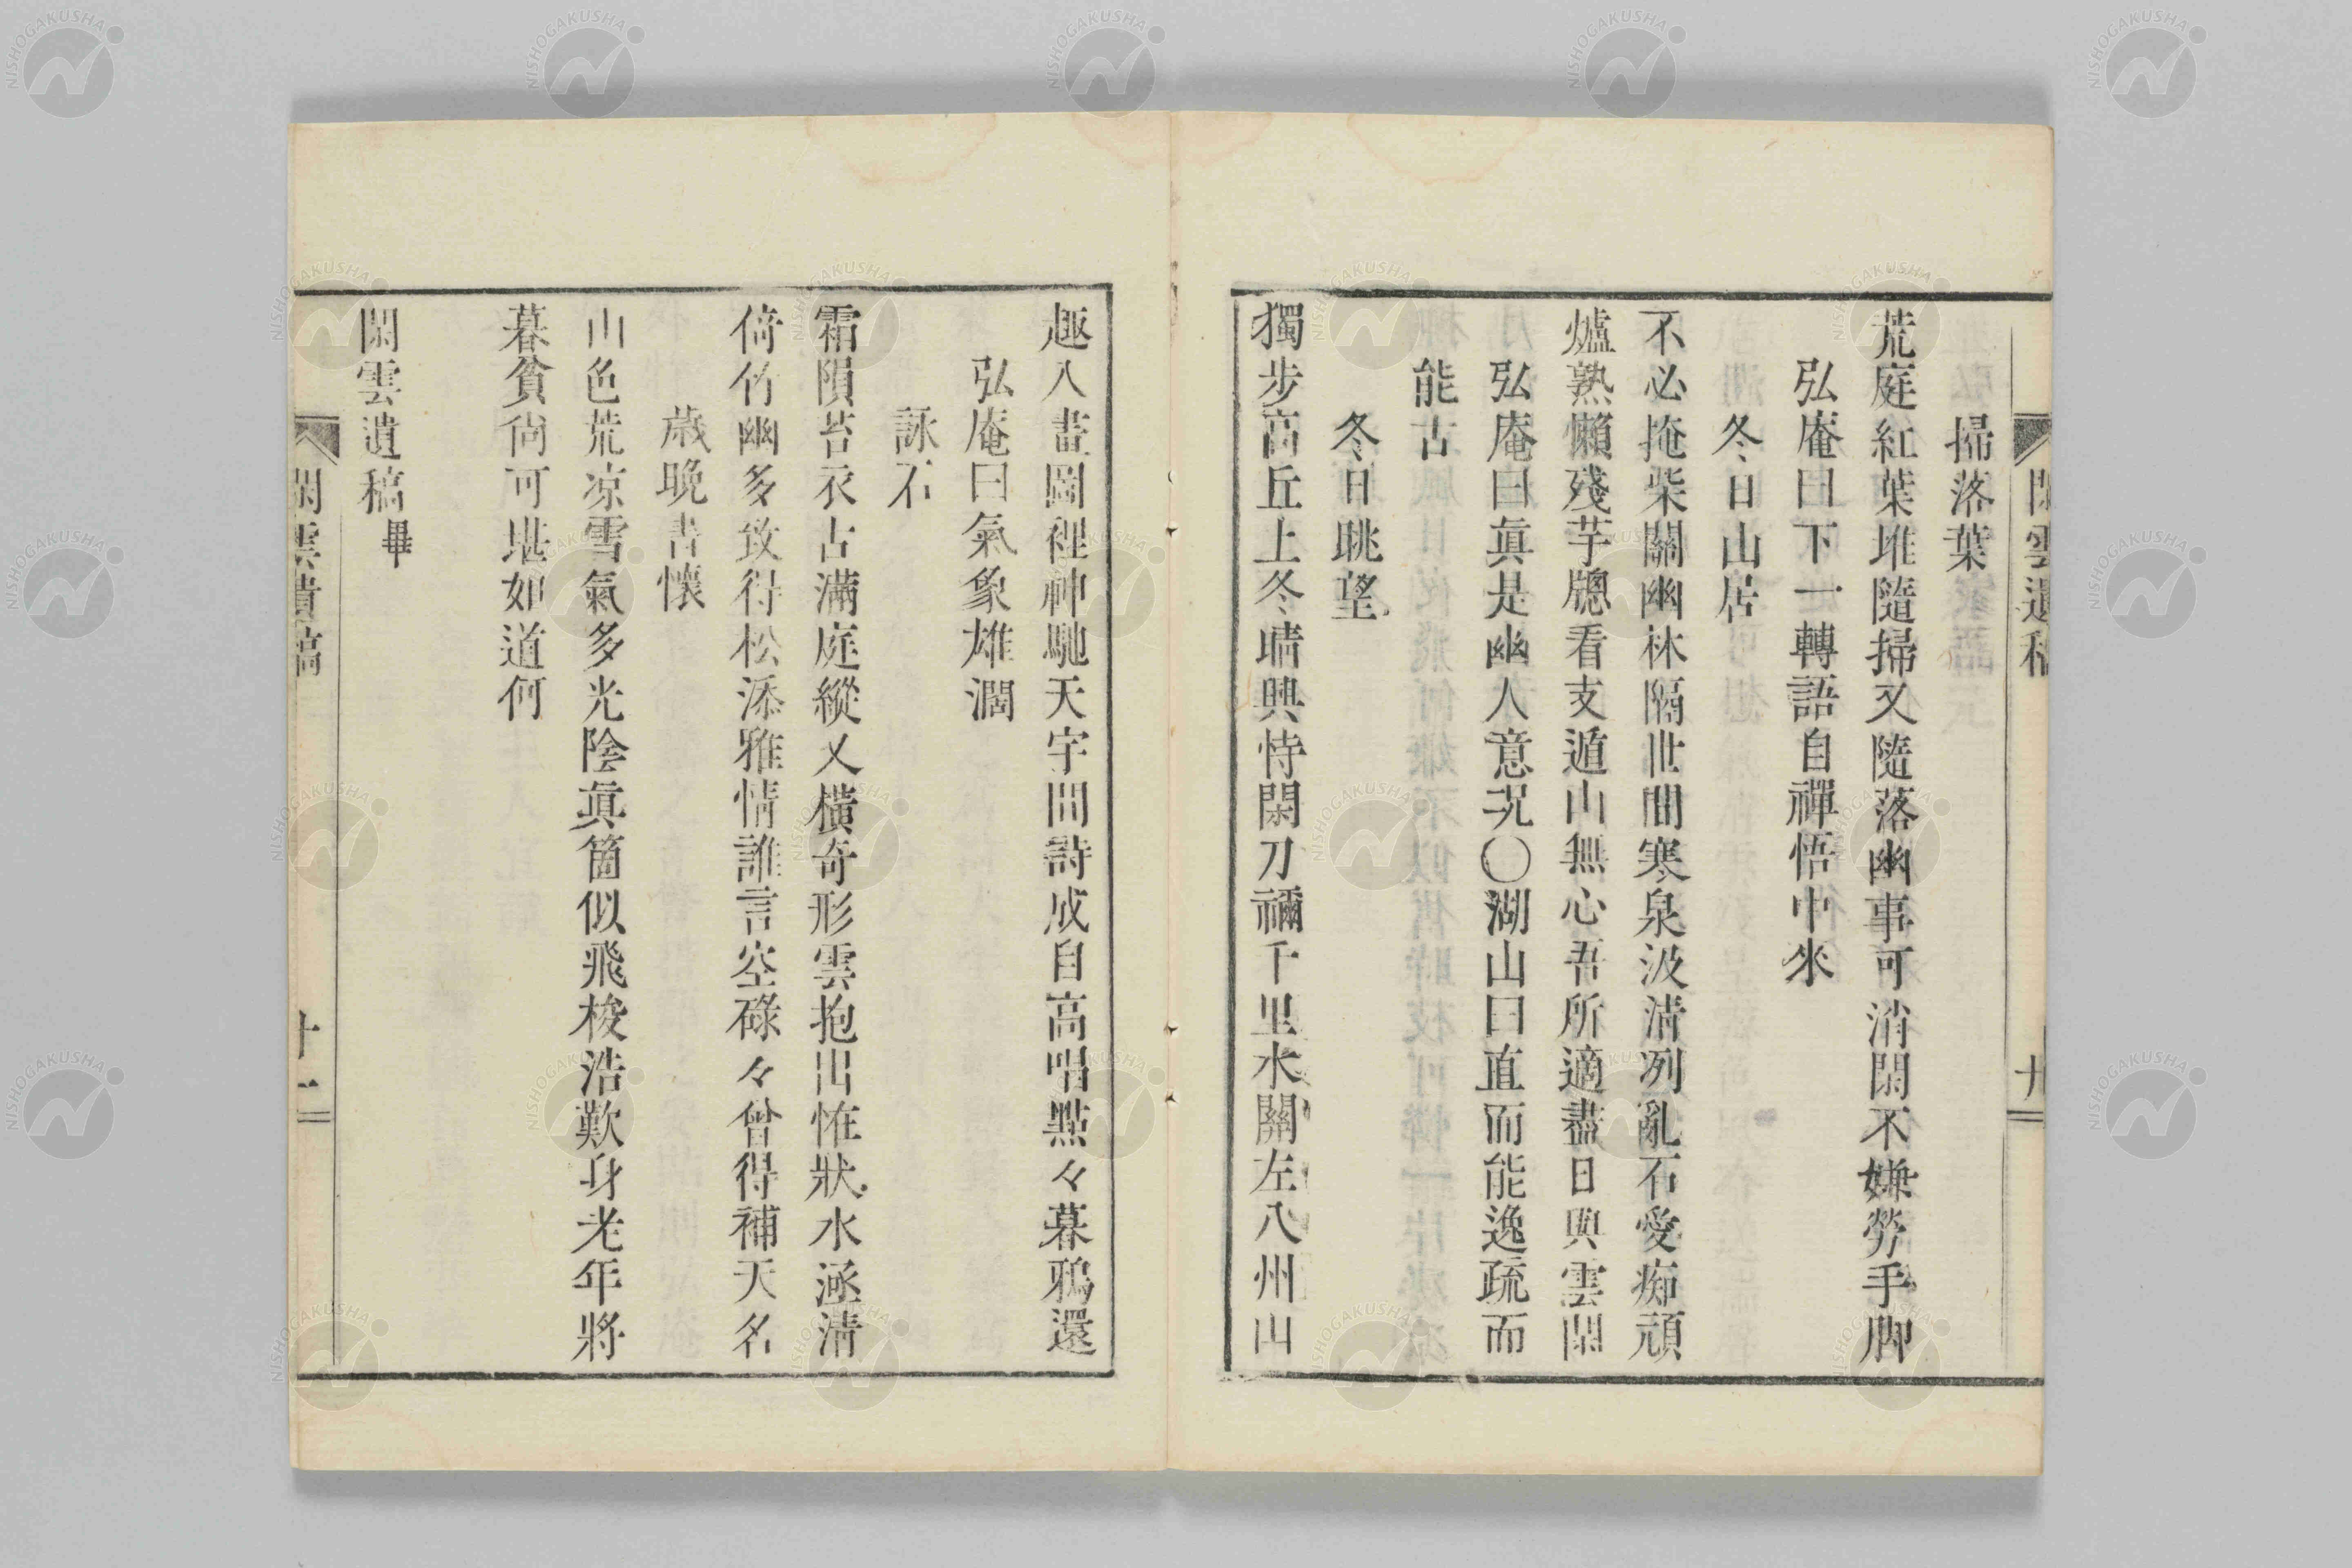 閑雲遺稿
十
掃落葉
荒庭紅葉堆隨掃又隨落幽事可消閑不嫌勞手脚
弘庵曰下一轉語自禪悟中來
冬日山居
不必掩柴關幽林隔世間寒泉汲清冽亂石愛痴頑
爐熟懶殘芋牕看支遁山無心吾所適盡日與雲閑
弘庵曰眞是幽人意況〇湖山曰直而能逸疏而
能古
冬日眺望
獨步高丘上冬晴興恃閑刀禰千里水關左八州山
趣入畫圖裡神馳天宇間詩成自高唱點々暮鴉還
弘庵曰氣象雄濶
詠石
霜隕苔衣古滿庭縱又橫奇形雲抱出恠狀水涵清
倚竹幽多致得松添雅情誰言空碌々曾得補天名
歲晚書懷
山色荒凉雪氣多光陰眞箇似飛梭浩歎身老年將
暮貧尙可堪如道何
閑雲遺稿畢
閑雲遺稿
十一
NISHOGAKUSHA